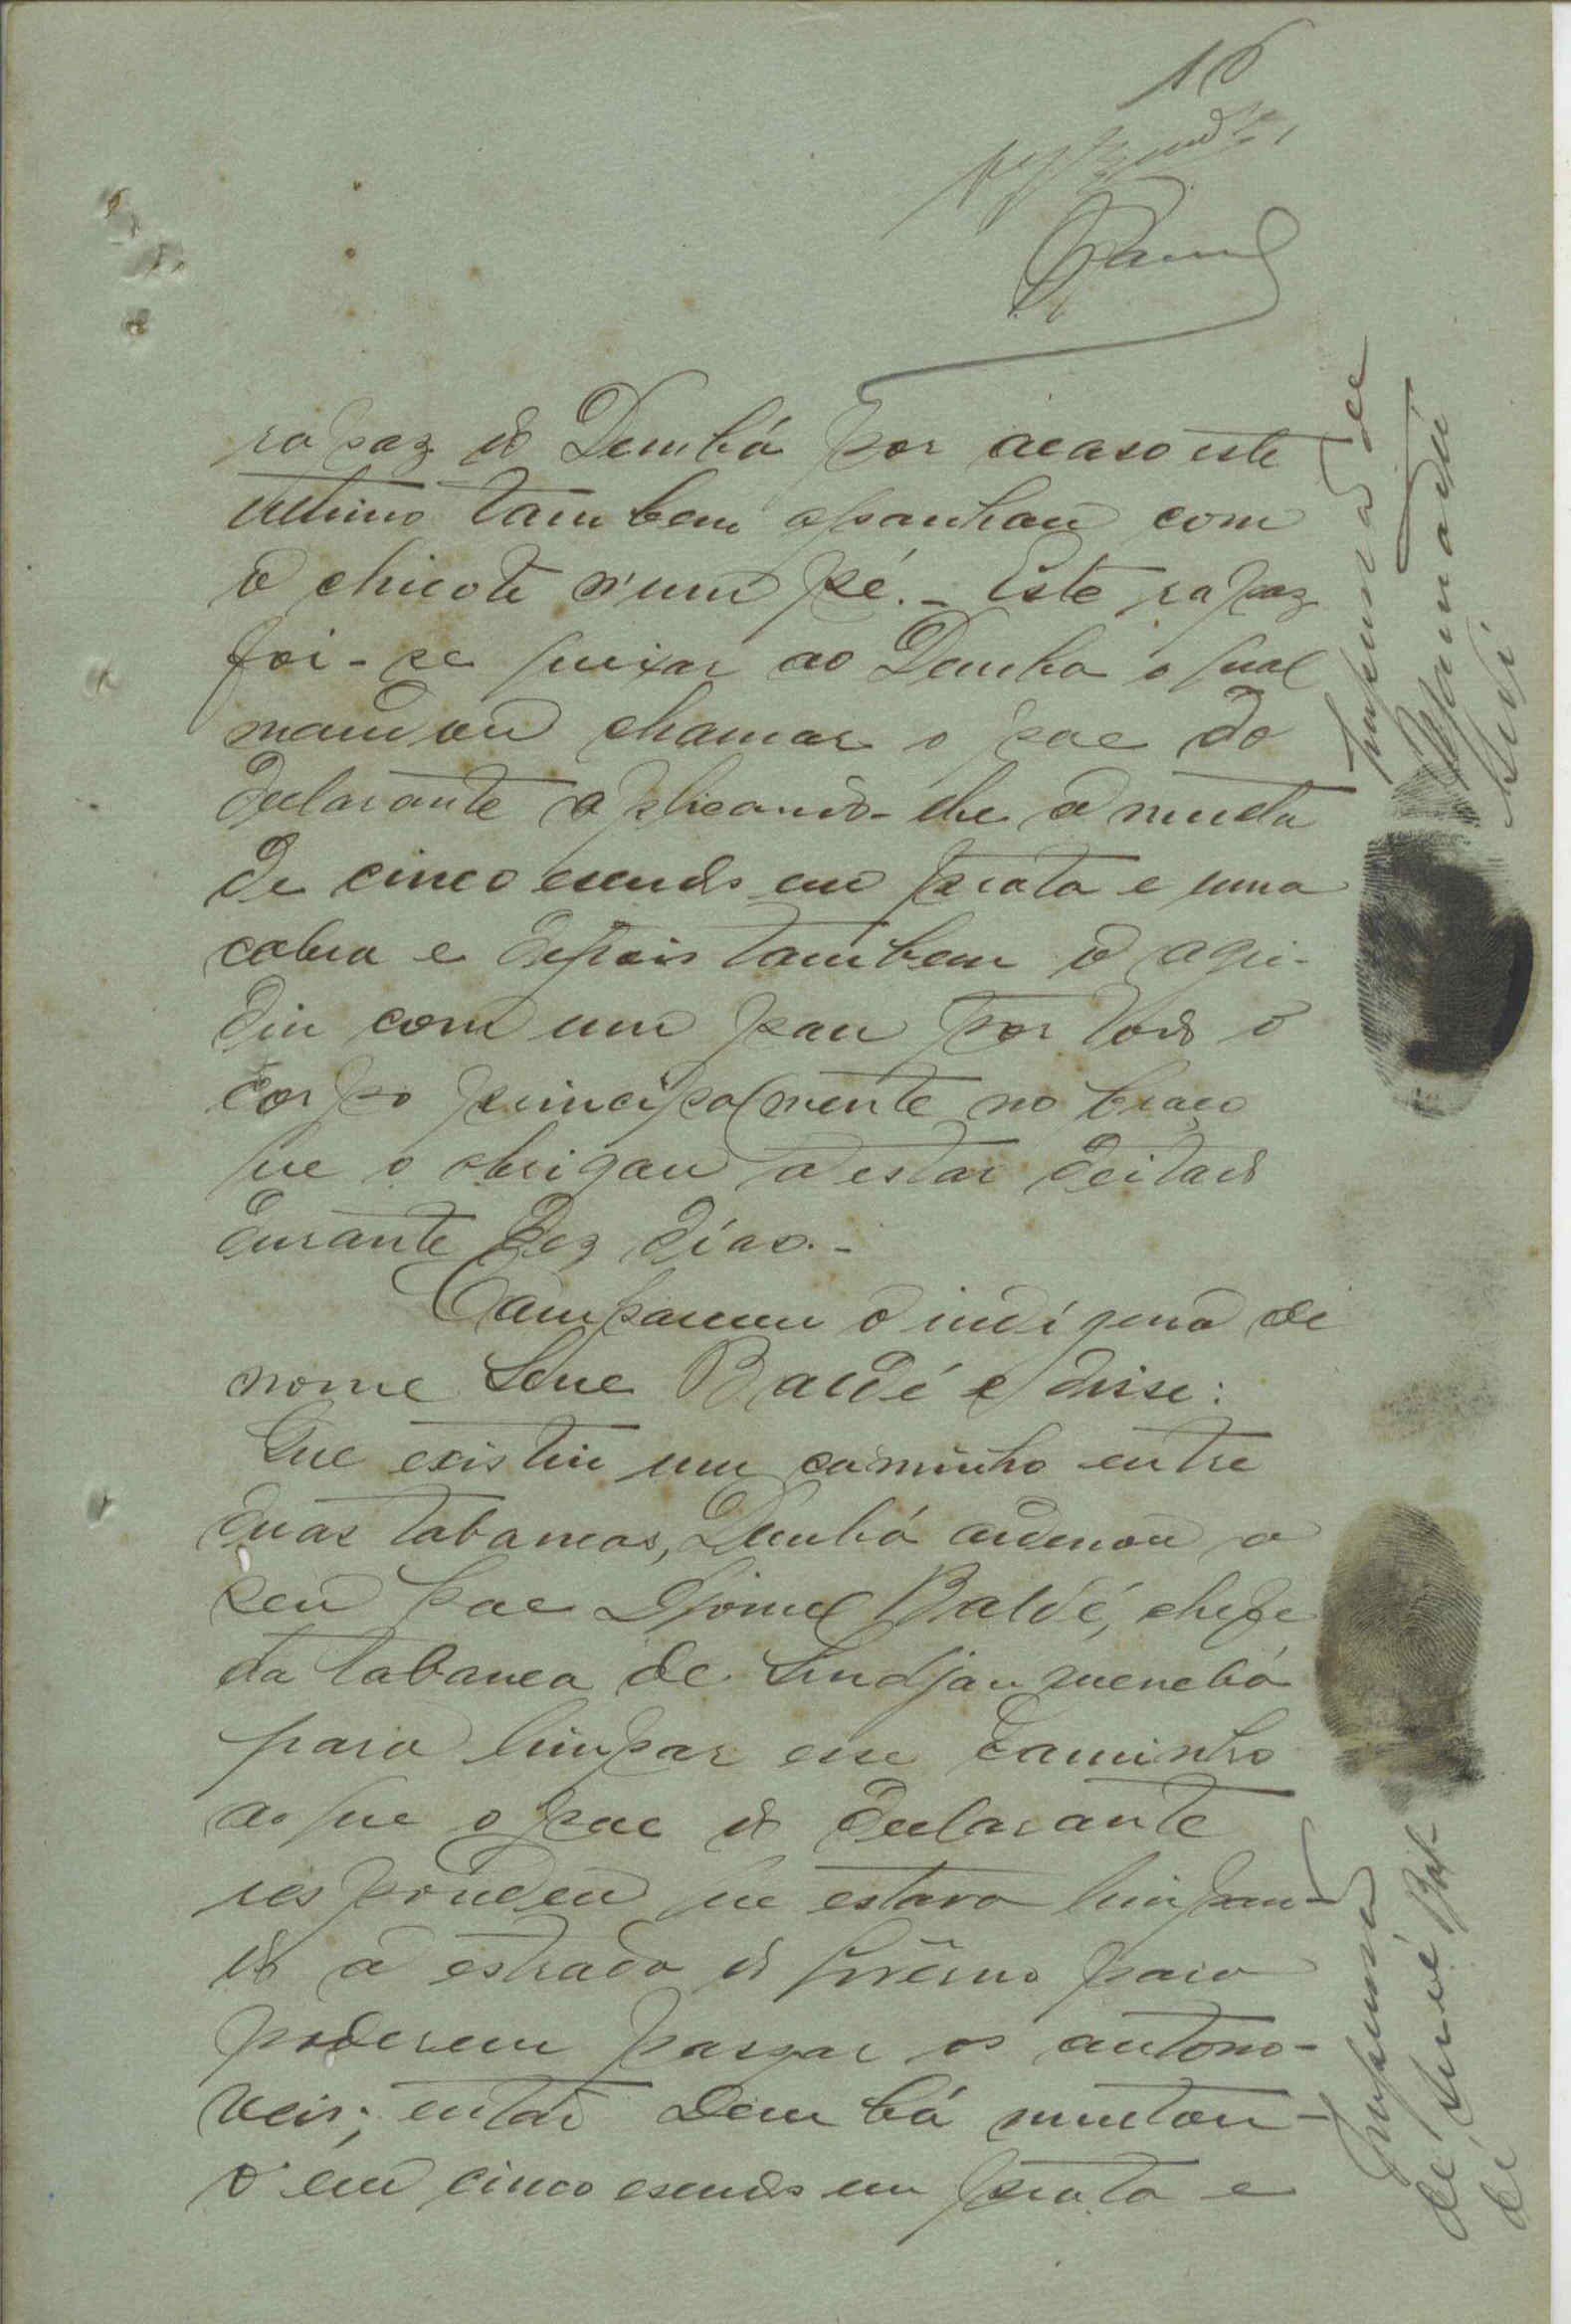 16
rapaz do Dembá por acaso este
ultimo tambem apanhou com
o chicote n'um pé. - Este rapaz
foi-se queixar ao Demba o qual
mandou chamar o pae do
declarante aplicando-lhe a multa
de cinco escudos em prata e uma
cabra e depois tambem o agre-
diu com um pau por todo o
corpo principalmente no braço
que o obrigou a estar deitado
durante dez dias. -
Compareceu o indígena de
nome Sene Baldé e disse:
Que existia um caminho entre
duas tabancas, Dembá ordenou a
seu pae Djomel Baldé, chefe
da tabanca de
para limpar esse caminho
ao que o pae do declarante
respondeu que estava limpan-
do a estrada do govêrno para
poderem passar os automo-
veis; então Dembá multou-
o em cinco escudos em prata e
Impressão de
Mamadú
Impressão
de Sene Bal-
dé